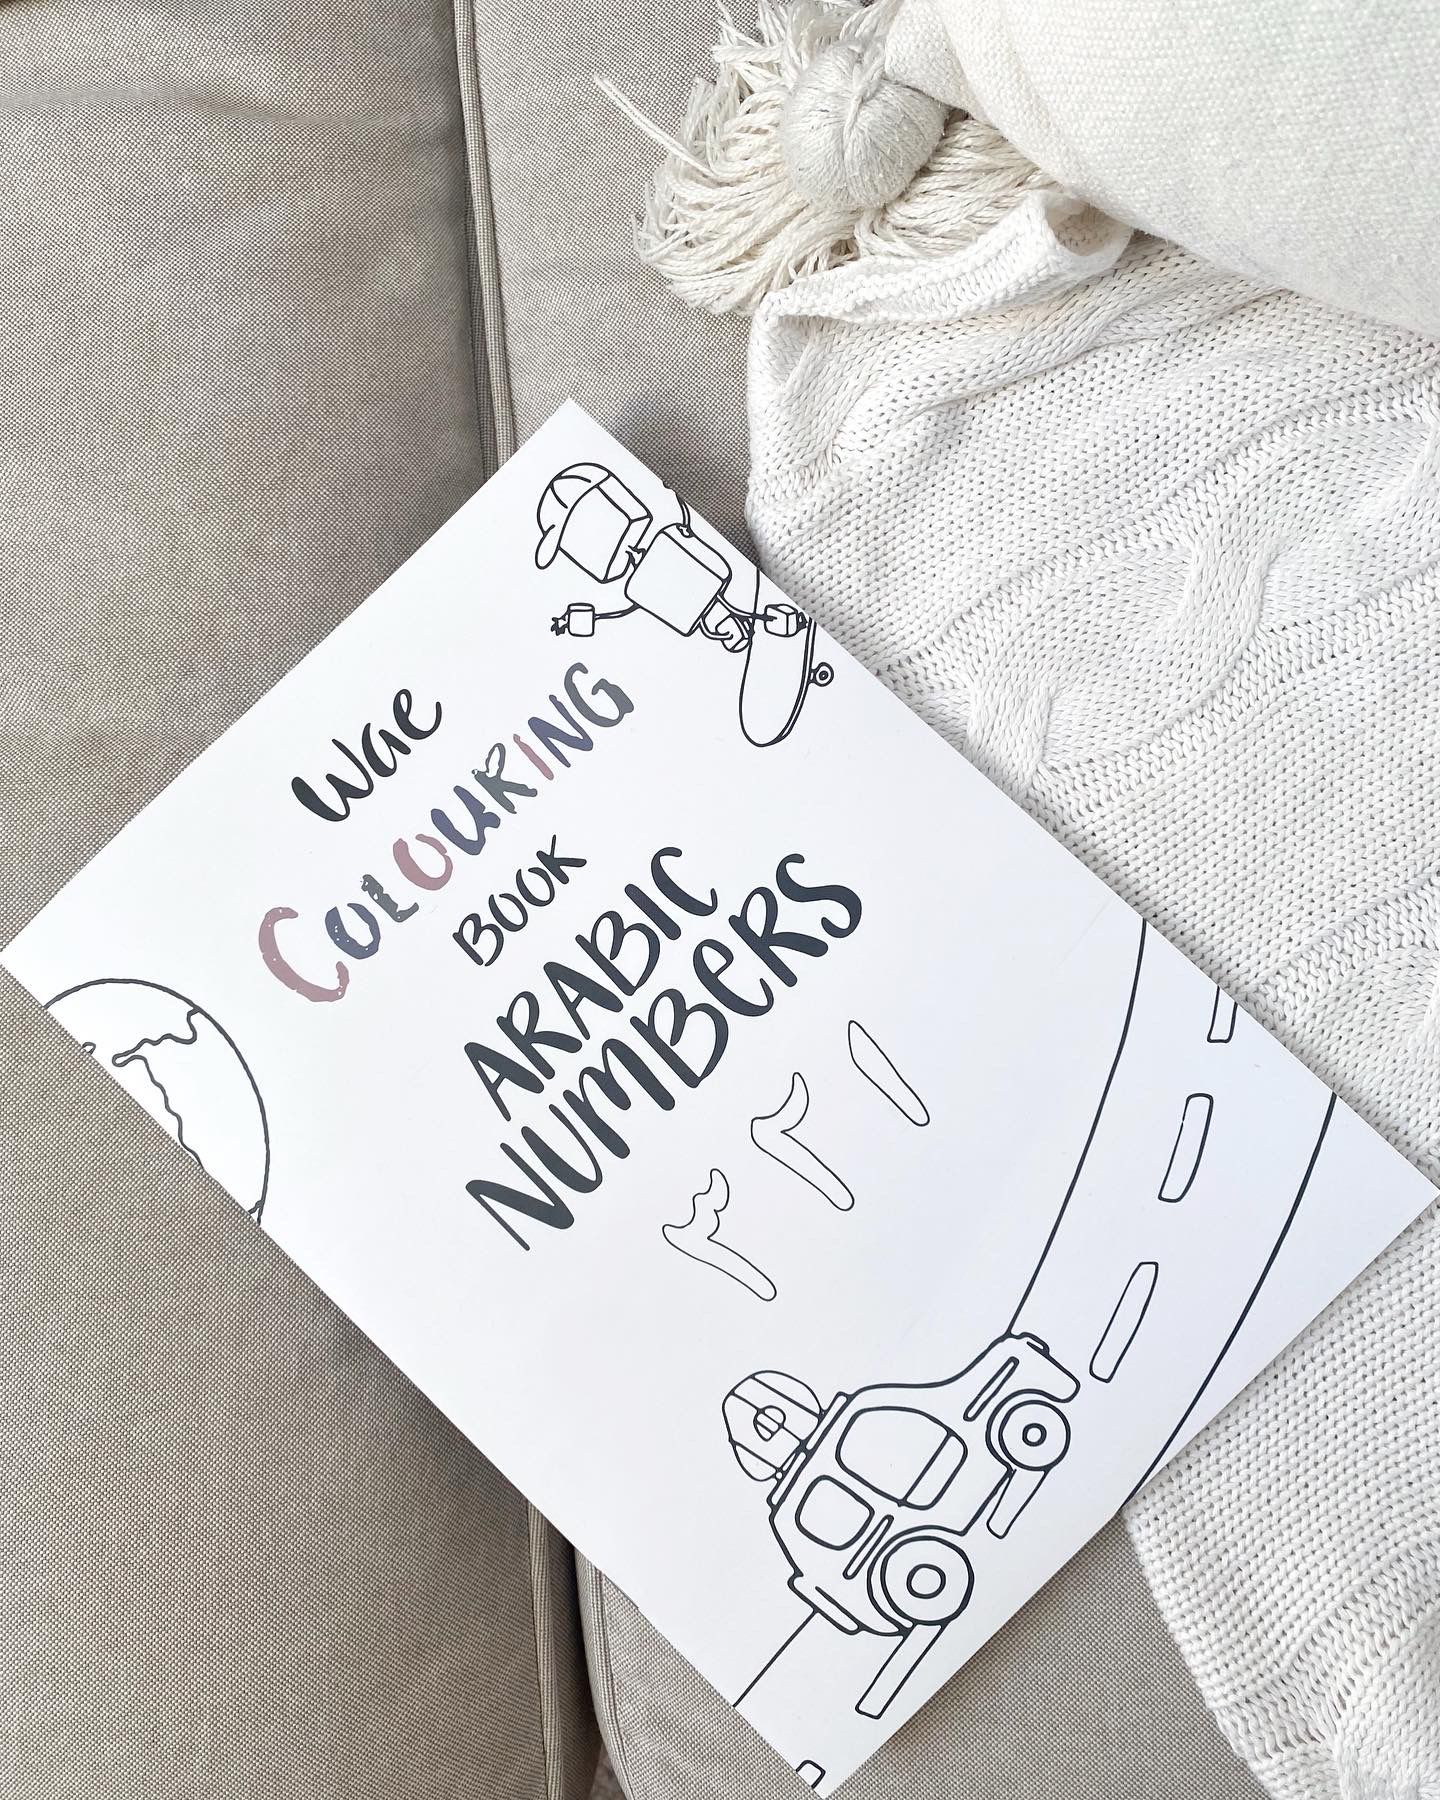 Wae
COLOURING
BOOK
ARABIC
NUMBERS
٣ ٢ ١